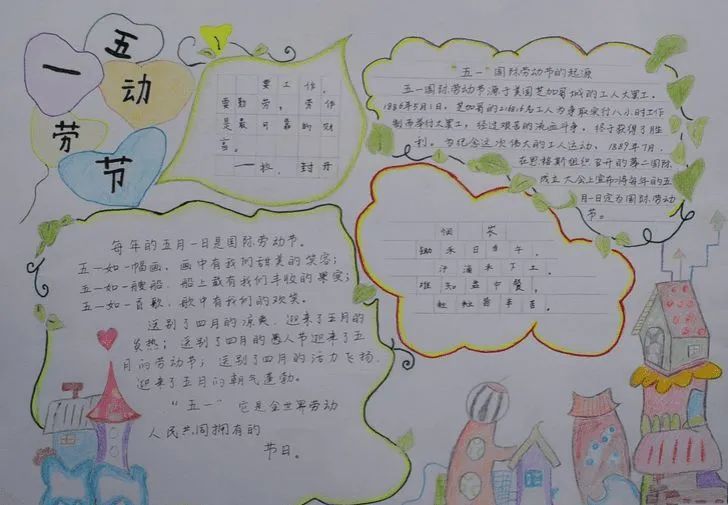 五
一
动
劳
节
要工作，
要勤劳，劳作
是最可靠的财
富。
五一国际劳动节的起源
五一国际劳动节源于美国芝加哥城的工人大罢工。
1886年5月1日，芝加哥的21.6万名工人为争取实行八小时工作
制而举行大罢工，经过艰苦的流血斗争，终于获得了胜
利。为纪念这次伟大的工人运动，1889年7月，
在恩格斯组织召开的第二国际
成立大会上宣布将每年的五
月一日定为国际劳动
节。
悯农
锄禾日当午，
汗滴禾下土。
谁知盘中餐，
粒粒皆辛苦。
每年的五月一日是国际劳动节。
五一如一幅画，画中有我们的甜美的笑容；
五一如一艘船，船上载有我们丰收的果实；
五一如一首歌，歌中有我们的欢笑。
送别了四月的凉爽，迎来了五月的
炎热；送别了四月的愚人节迎来了五
月的劳动节；送别了四月的活力飞扬，
迎来了五月的朝气蓬勃。
“五一”它是全世界劳动
人民共同拥有的
节日。